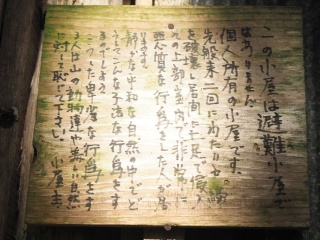 この小屋は避難小屋で
はありません。
個人所有の小屋です。
先般来二回にわたりや
を破壊し居間に土足で侵入
の上部室内で非常に
悪質な行為をした人が居
います。
静かな平和な自然の中でど
うしてこんな不法な行為をす
るのでしょう。
こうした卑劣な行為をす
る人は山の動物達や美しい自然
に対して恥じて下さい。
小屋主